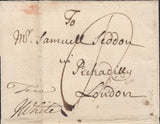 To
Mr. Samuell Seddon
in
Pickadilly
London
White